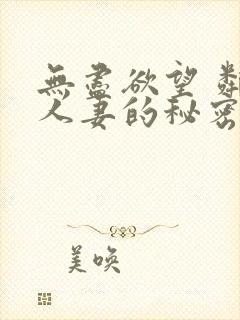 無盡欲望 
人妻的秘密
美喚